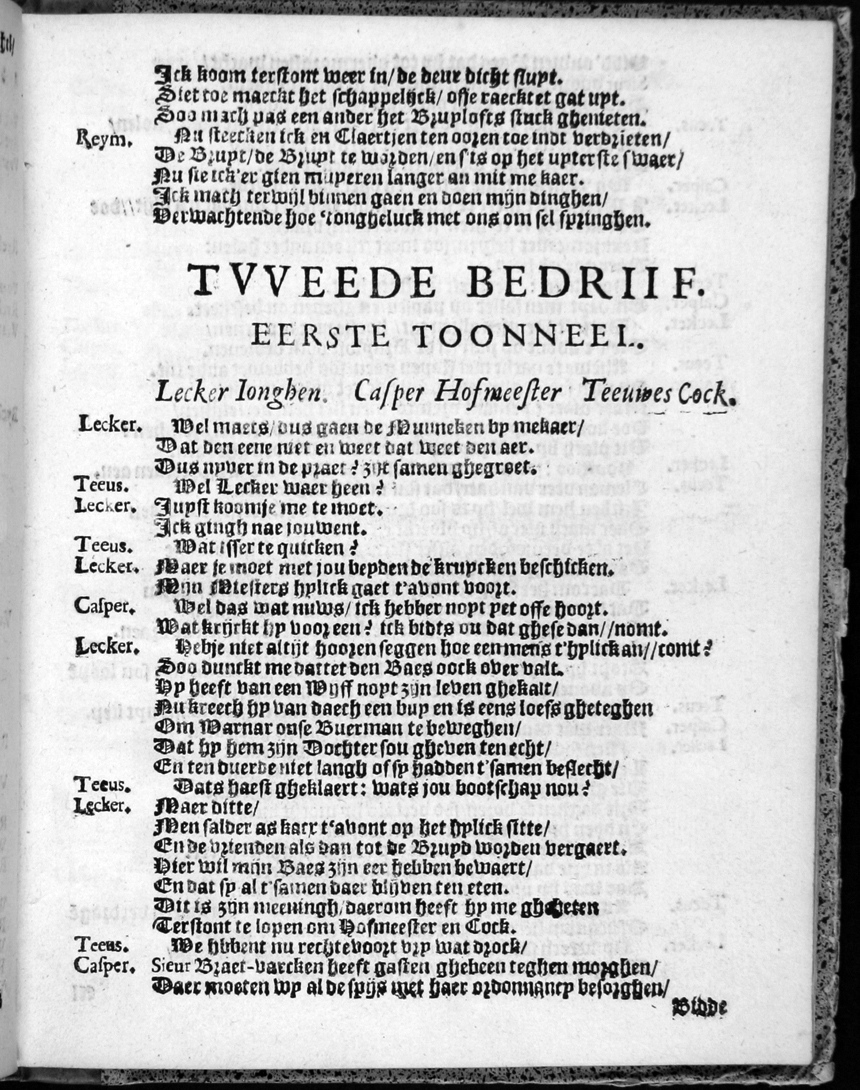 Ick koom terstont weer in/ de deur dicht sluyt.
Siet toe maeckt het schappelijck/ offe raecktet gat uyt.
Soo mach pas een ander het Bruylofts stuck ghenieten.
Reym. Nu steecken ick en Claertjen ten ooren toe indt verdrieten/
De Bruyt/ de Bruyt te worden/ en s'is op het uyterste swaer/
Nu sie ick'er gien muyeren langer an mit me kaer.
Ick mach terwijl binnen gaen en doen mijn dinghen/
Verwachtende hoe 'tongheluck met ons om sel springhen.
TVVEEDE BEDRIIF.
EERSTE TOONNEEL.
Lecker Ionghen. Casper Hofmeester Teeuwes Cock.
Lecker. Wel maets/ dus gaen de Munneken by mekaer/
Dat den eene niet en weet dat weet den aer.
Dus nyver in de praet? zijt samen ghegroet.
Teeus. Wel Lecker waer heen?
Lecker. Juyst koomje me te moet.
Ick gingh nae jouwent.
Teeus. Wat isser te quicken?
Lecker. Maer je moet met jou beyden de kruycken beschicken.
Mijn Miesters hylick gaet t'avont voort.
Casper. Wel das wat nuws/ ick hebber noyt yet offe hoort.
Wat krijckt hy voor een? ick bidts ou dat ghese dan//nomt.
Lecker. Hebje niet altijt hooren seggen hoe een mens t'hylick an//comt?
Soo dunckt me dattet den Baes oock over valt.
Hy heeft van een Wyff noyt zijn leven ghekalt/
Nu kreech hy van daech een buy en is eens loefs gheteghen
Om Warnar onse Buerman te beweghen/
Dat hy hem zijn Dochter sou gheven ten echt/
En ten duerde niet langh of sy hadden t'samen beslecht/
Teeus. Dats haest gheklaert: wats jou bootschap nou?
Lecker. Maer ditte/
Men salder as kaer t'avont op het hylick sitte/
En de vrienden als dan tot de Bruyd worden vergaert.
Hier wil mijn Baes zijn eer hebben bewaert/
En dat sy al t'samen daer blijven ten eten.
Dit is zijn meeningh/ daerom heeft hy me gheheten
Terstont te lopen om Hofmeester en Cock.
Teeus. We hbbent nu rechtevoort vry wat drock/
Casper. Sieur Braet-varcken heeft gasten ghebeen teghen morghen/
Daer moeten wy al de spijs met haer ordonnancy besorghen/
Bidde